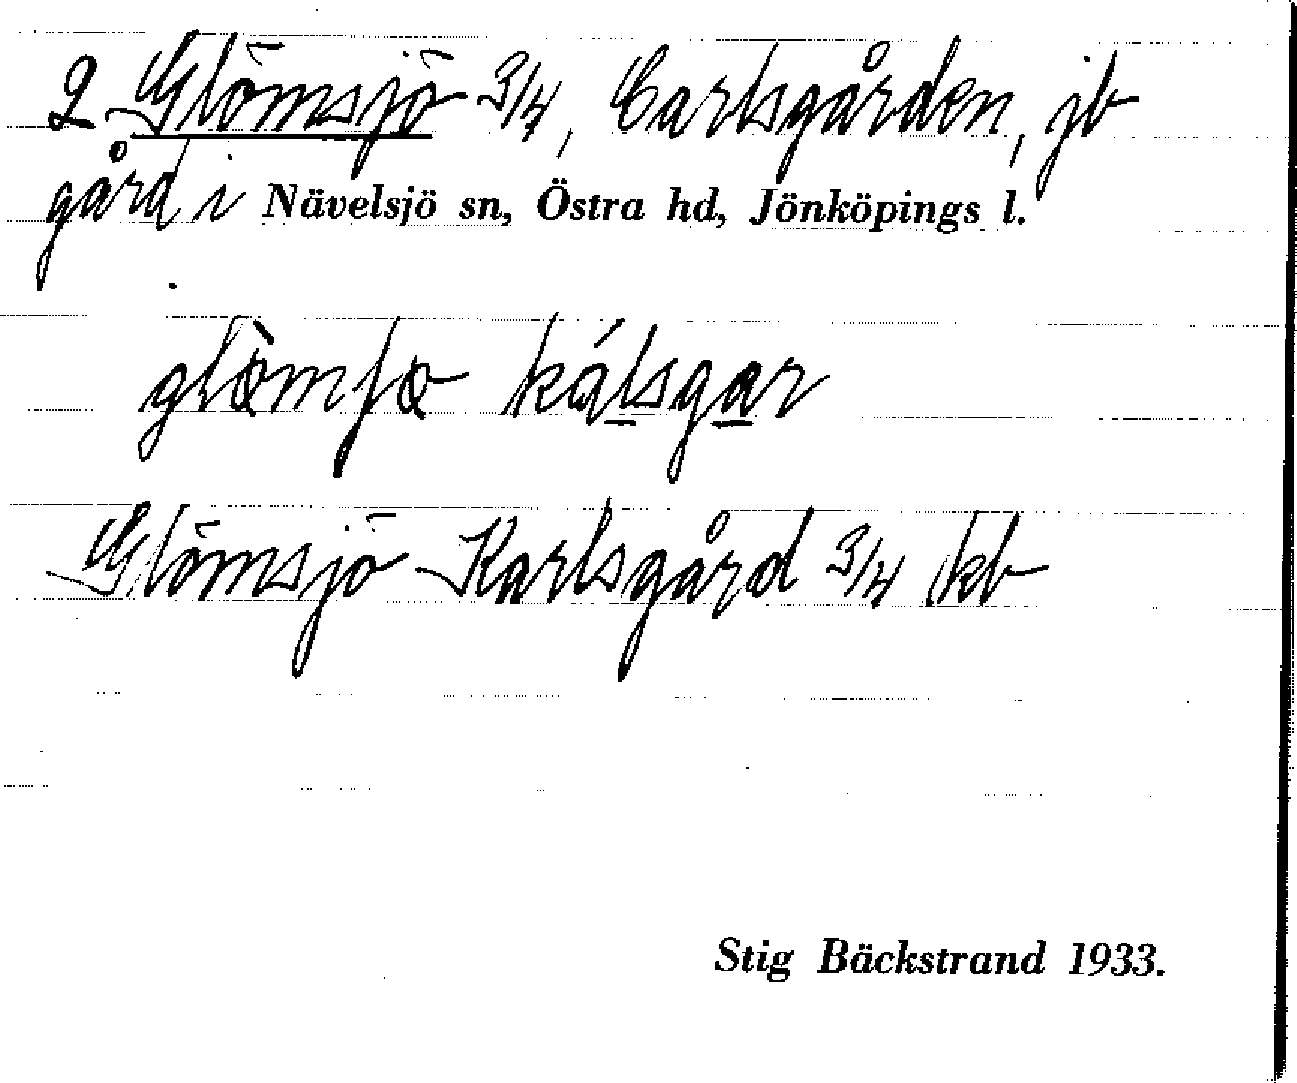 2 Glömsjö 3/4, Carlsgården, jb
gård i Nävelsjö sn, Östra hd, Jönköpings l.
glòmʃө kálsgar
Glömsjö Karlsgård 3/4 kb
Stig Bäckstrand 1933.